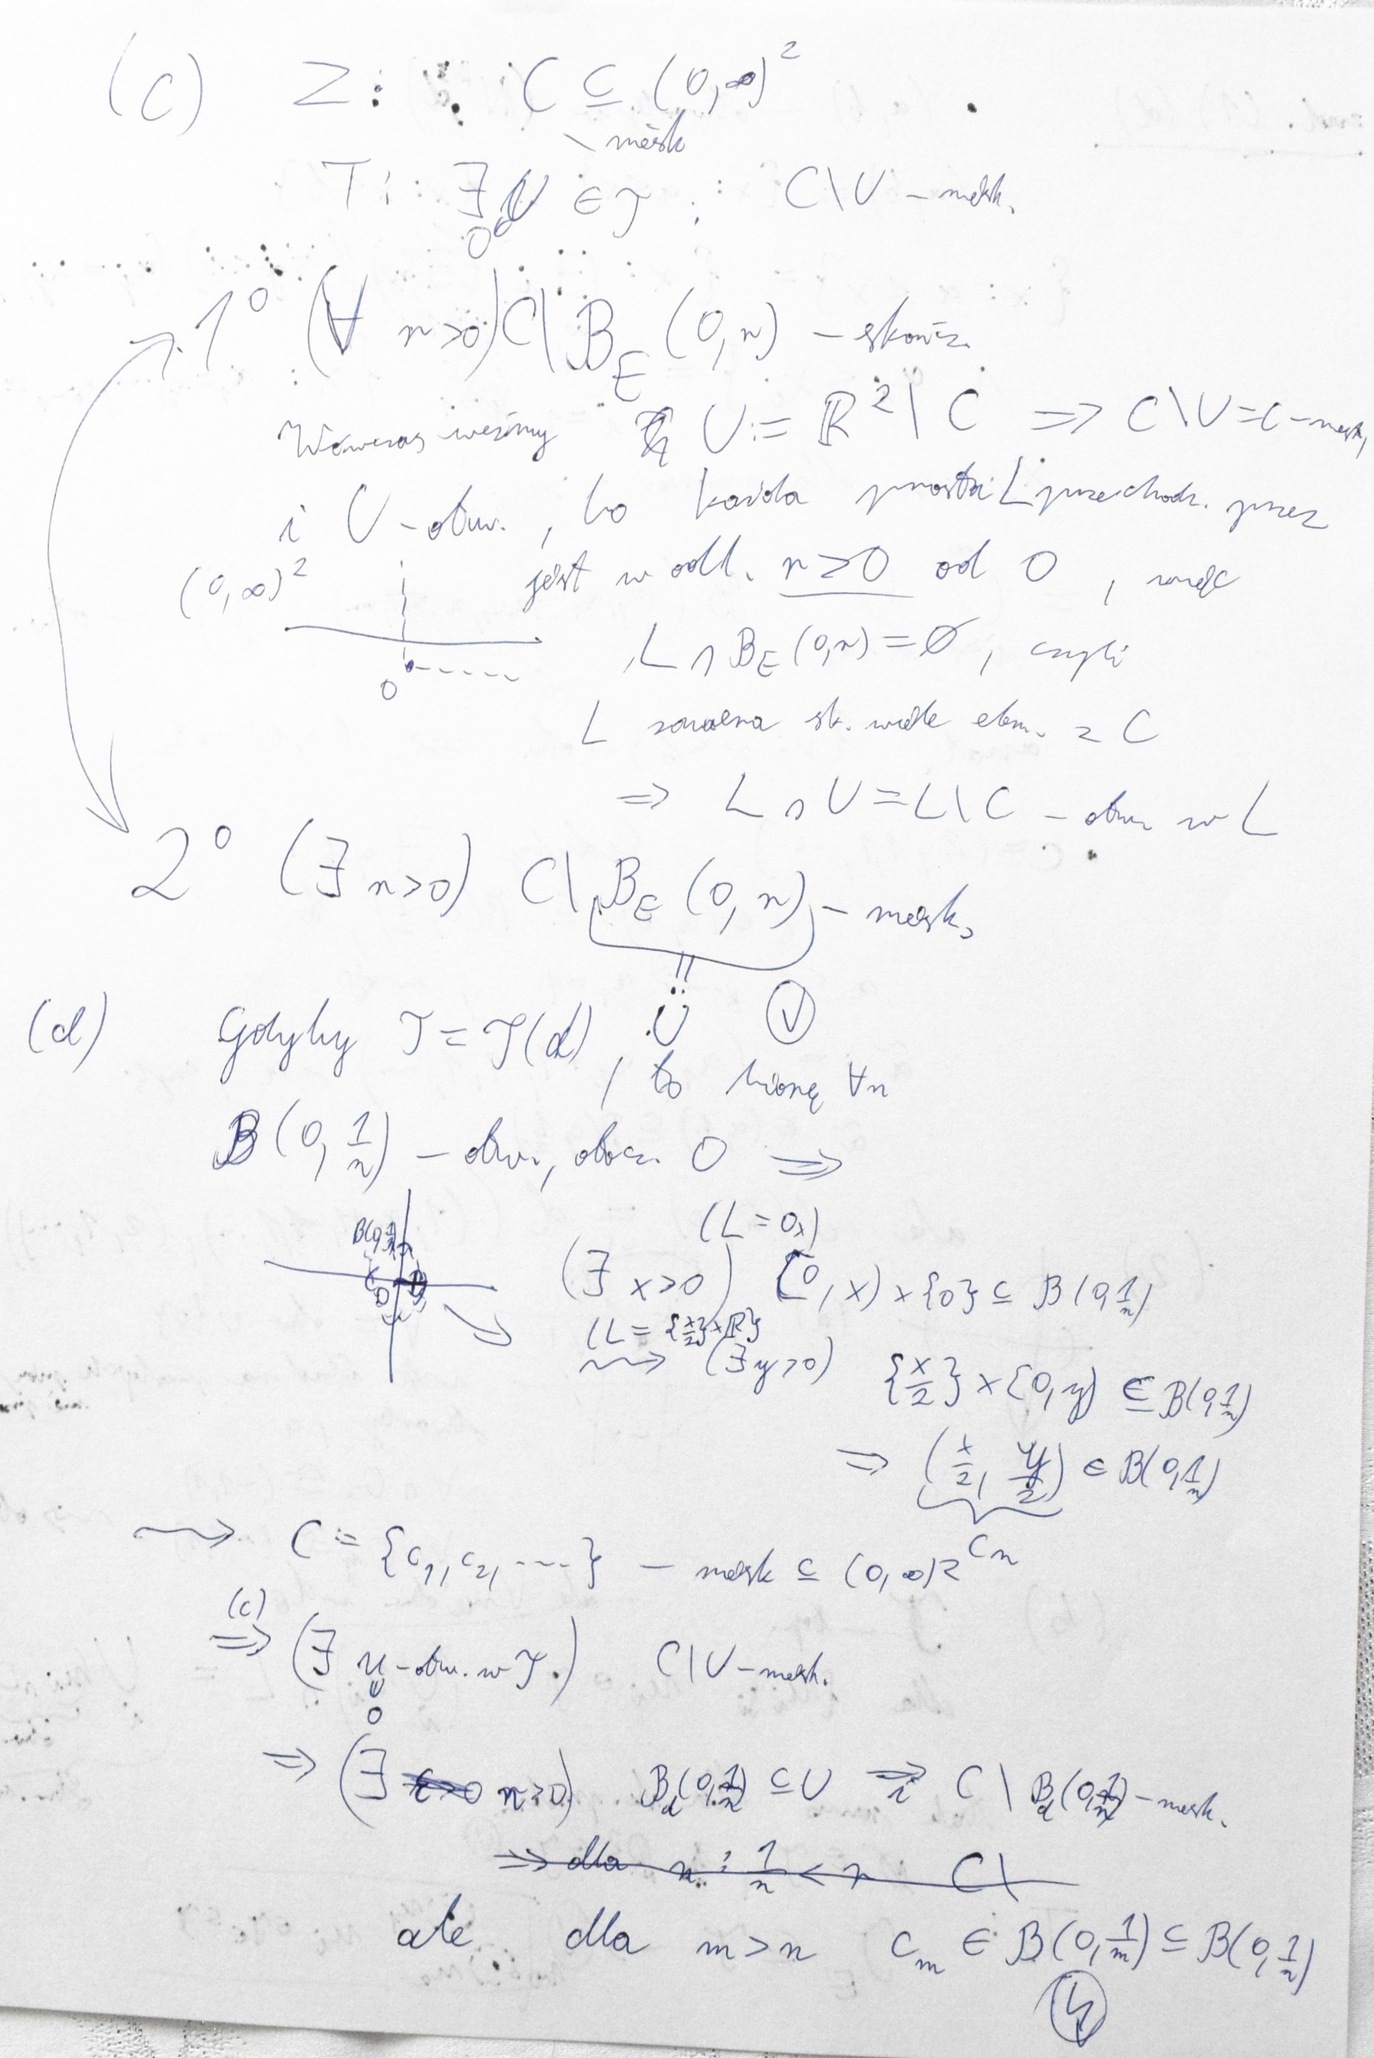 (c) Z: C ⊆ (0,∞)²
niesk
T: ∃ U ∈ T : C\U – niesk.
0
1° (∀ r>0) C\B_E (0,r) – skończ.
Wówczas weźmy U := ℝ²\C ⇒ C\U = C – niesk,
i U – otw., bo każda prosta L przechodz. przez
(0,∞)² jest w odl. r>0 od 0, więc
L ∩ B_E (0,r) = ∅, czyli
0
L zawiera sk. wiele elem. z C
⇒ L ∩ U = L\C – otw. w L
2° (∃ r>0) C\B_E (0,r) – niesk,
U
(d) Gdyby T = T(d), to biorę ∀n
B(0, 1/n) – otw., otocz. 0 ⇒
(L = 0x)
B(0,1/n)
(∃ x>0) [0, x) × {0} ⊆ B(0,1/n)
(L = {x/2}×ℝ)
⇝ (∃ y>0) {x/2} × [0,y) ⊆ B(0,1/n)
⇒ (x/2, y/2) ∈ B(0,1/n)
c_n
⇝ C := {c₁, c₂, ....} – niesk ⊆ (0,∞)²
(c)
⇒ (∃ U – otw. w T.) C\U – niesk.
0
⇒ (∃ n>0) B_d(0,1/n) ⊆ U ⇒ C \ B_d(0,1/n) – niesk.
⇒ dla n : 1/n < r C\
ale dla m>n c_m ∈ B(0,1/m) ⊆ B(0,1/n)